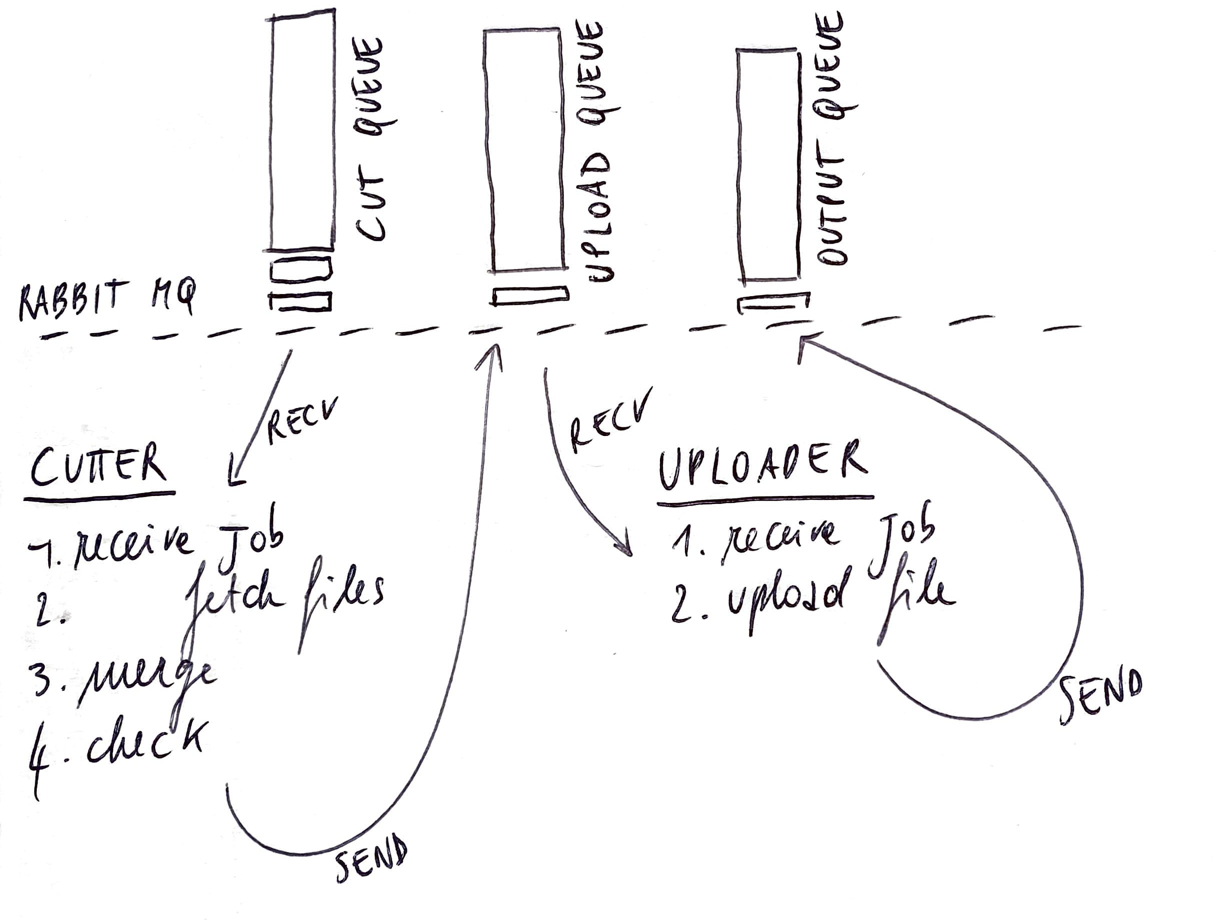 CUT QUEUE
UPLOAD QUEUE
OUTPUT QUEUE
RABBIT MQ
RECV
RECV
CUTTER
1. receive Job
2. fetch files
3. merge
4. check
SEND
UPLOADER
1. receive Job
2. upload file
SEND